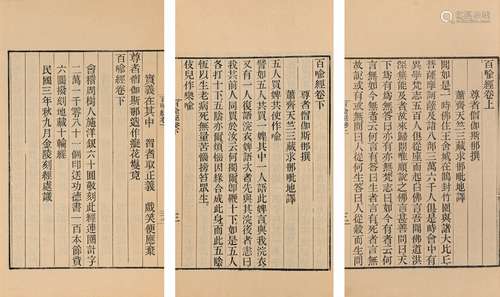 百喻經卷上
尊者僧伽斯那撰
蕭齊天竺三藏求那毗地譯
聞如是一時佛住王舍城在鵲封竹園與諸大比丘
菩薩摩訶薩及諸八部三萬六千人俱是時會中有
異學梵志五百人俱從座而起白佛言吾聞佛道洪
深無能及者故來歸問唯願說之佛言甚善問曰天
下爲有爲無答曰亦有亦無梵志曰如今有者云何
言無如今無者云何言有答曰生者言有死者言無
故說或有或無問曰人從何生答曰人從穀而生問
百喻經卷下
尊者僧伽斯那撰
蕭齊天竺三藏求那毗地譯
五人買婢共使作喻
譬如五人共買一婢其中一人語此婢言與我浣衣
又有一人復語浣衣婢語次者先與其浣後者恚曰
我共前人同買於汝云何獨爾即鞭十下如是五人
各打十下五陰亦爾煩惱因緣合成此身而此五陰
恆以生老病死無量苦惱搒笞眾生
伎兒作樂喻
實義在其中 智者取正義 戲笑便應棄
尊者僧伽斯那造作癡花鬘竟
百喻經卷下
會稽周樹人施洋銀六十圓敬刻此經連圈計字
二萬一千零八十一個印送功德書一百本餘貲
六圓撥刻地藏十輪經
民國三年秋九月金陵刻經處識